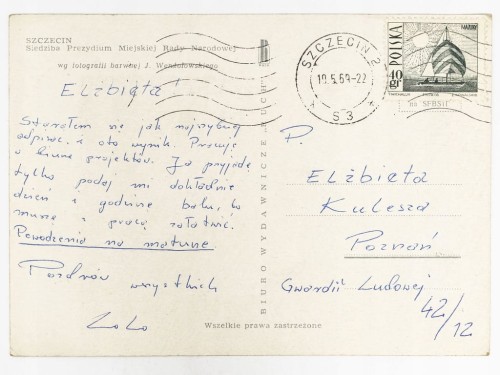 SZCZECIN
Siedziba Prezydium Miejskiej Rady Narodowej
wg fotografii barwnej J. Wendołowskiego
Elżbieta!
Starałem się jak najszybciej
odpisać, a oto wynik. Pracuję
w biurze projektów. Ja przyjadę
tylko podaj mi dokładnie
dzień i godzinę balu, bo
muszę i pracę załatwić.
Powodzenia na maturze
Pozdrów wszystkich
Lolo
BIURO WYDAWNICZE „RUCH”
Wszelkie prawa zastrzeżone
SZCZECIN 2
19.5.69-22
S 3
POLSKA
40 gr
na SFBSiI
P.
Elżbieta
Kulesza
Poznań
Gwardii Ludowej
42/12